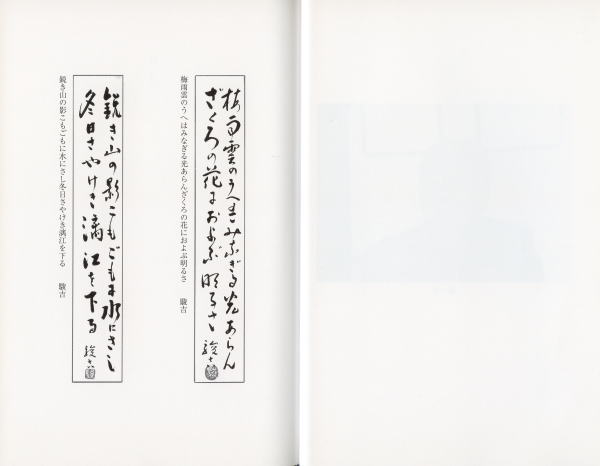 梅雨雲のうへはみなぎる光あらん
ざくろの花におよぶ明るさ
駿吉
梅雨雲のうへはみなぎる光あらんざくろの花におよぶ明るさ　駿吉
鋭き山の影こもごもに水にさし
冬日さやけき漓江を下る
駿吉
鋭き山の影こもごもに水にさし冬日さやけき漓江を下る　駿吉